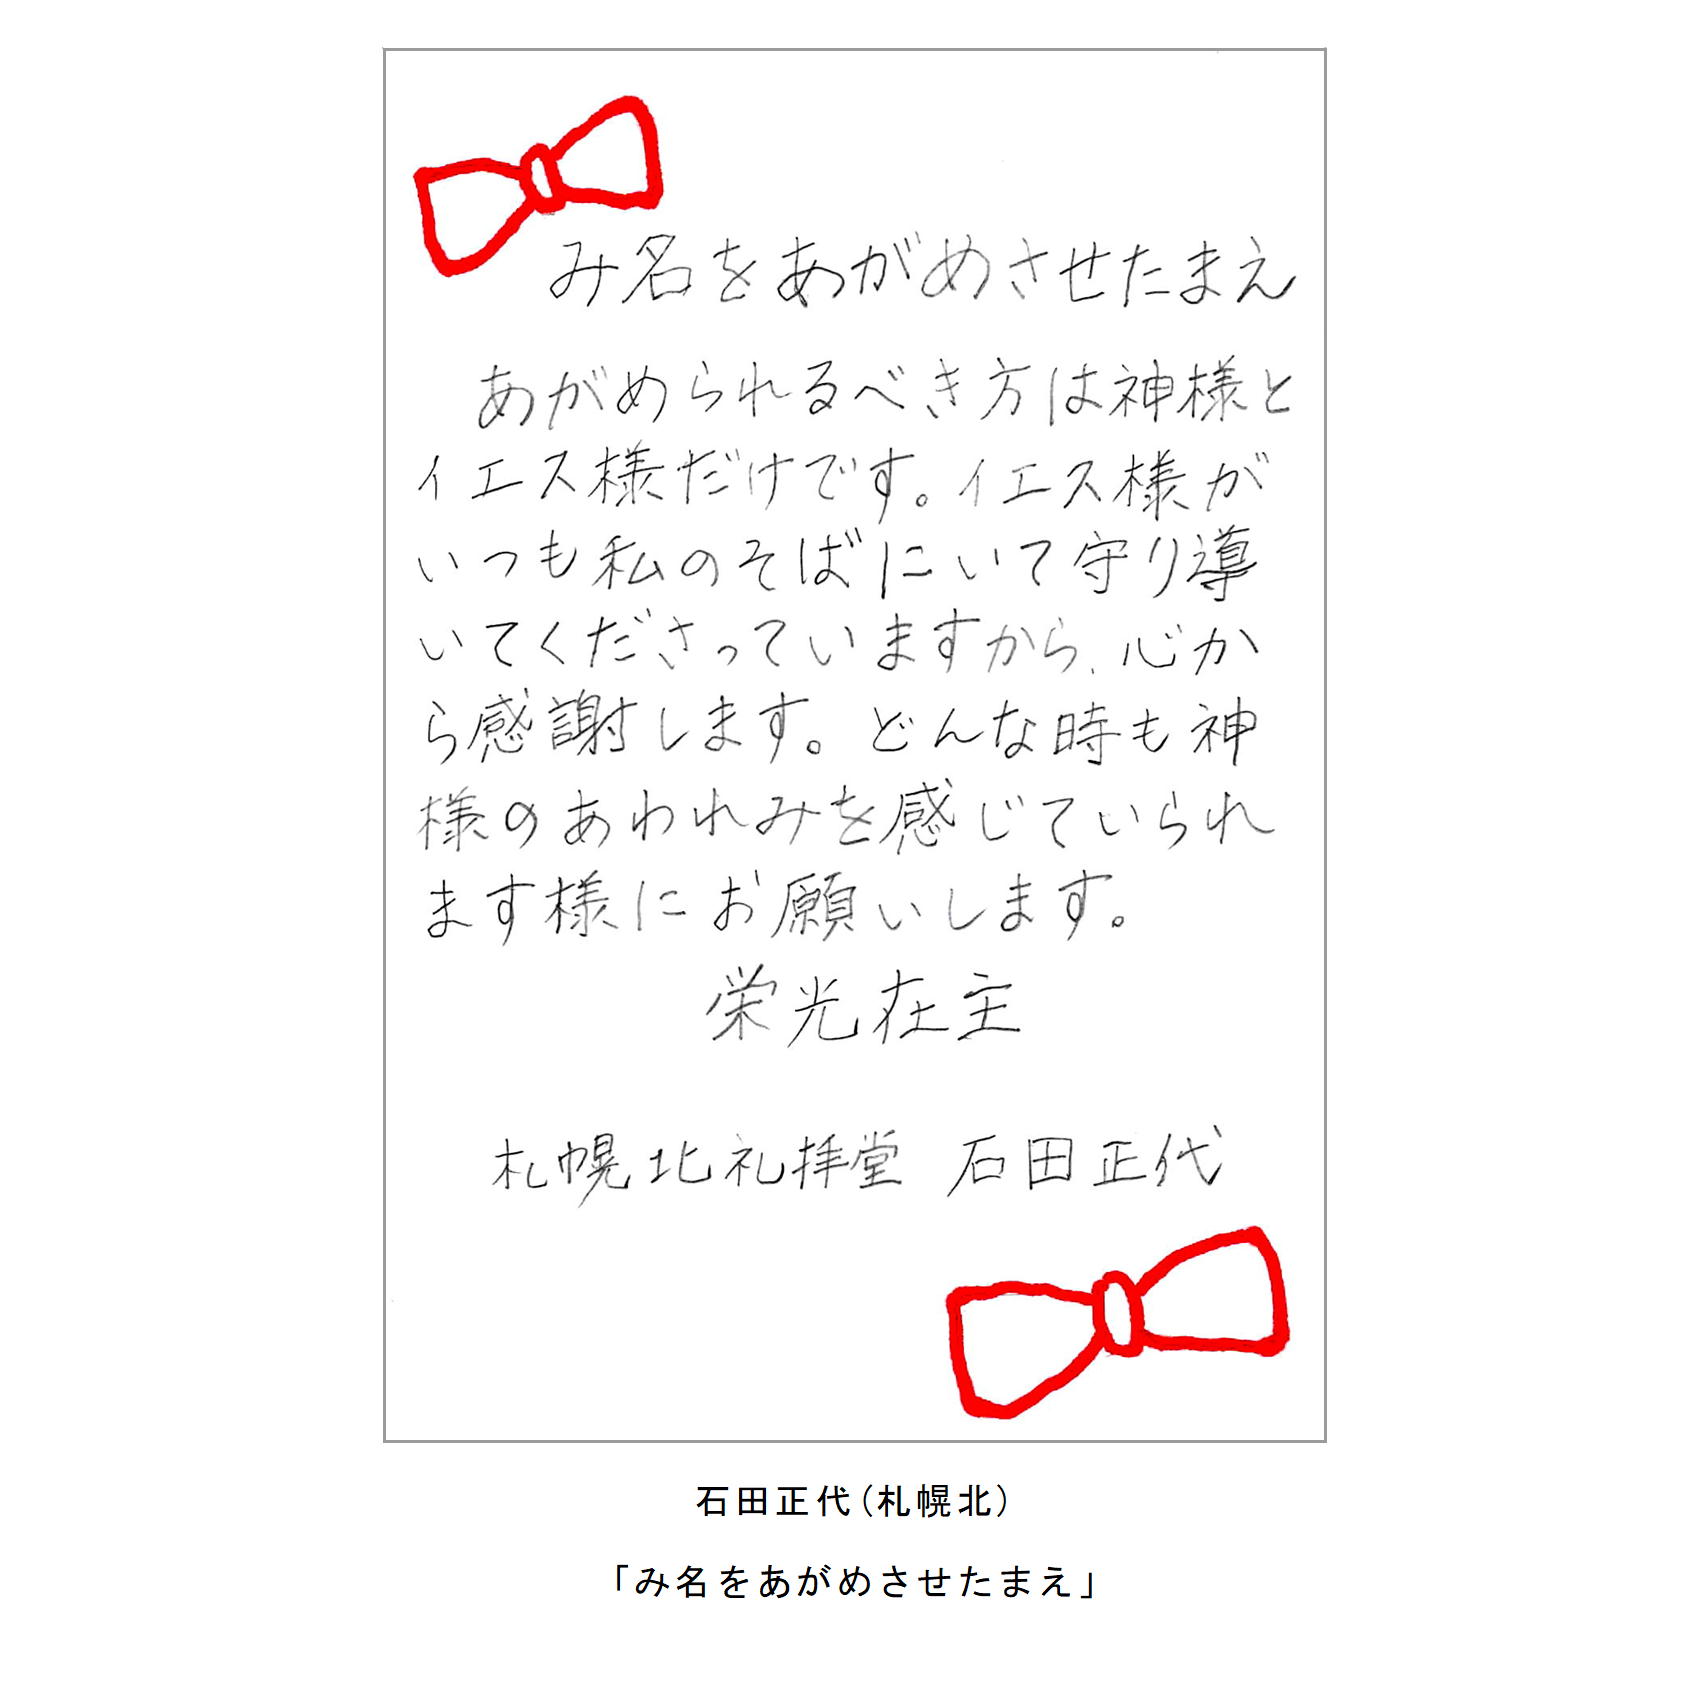 み名をあがめさせたまえ
あがめられるべき方は神様と
イエス様だけです。イエス様が
いつも私のそばにいて守り導
いてくださっていますから、心か
ら感謝します。どんな時も神
様のあわれみを感じていられ
ます様にお願いします。
栄光在主
札幌北礼拝堂 石田正代
石田正代(札幌北)
「み名をあがめさせたまえ」